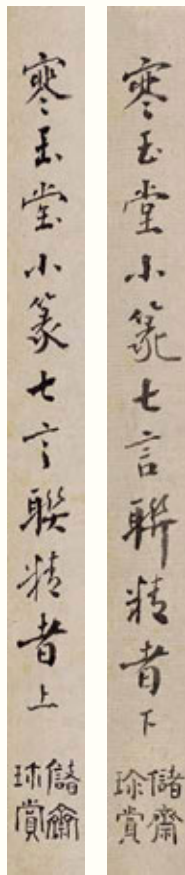 寒玉堂小篆七言聯精者上
儲齋
珍賞
寒玉堂小篆七言聯精者下
儲齋
珍賞